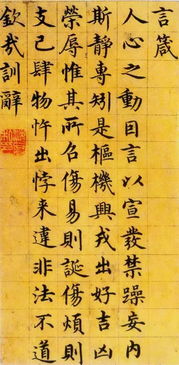 言箴
人心之動因言以宣發禁躁妄內
斯靜專矧是樞機興戎出好吉凶
榮辱惟其所召傷易則誕傷煩則
支己肆物忤出悖来違非法不道
欽哉訓辭